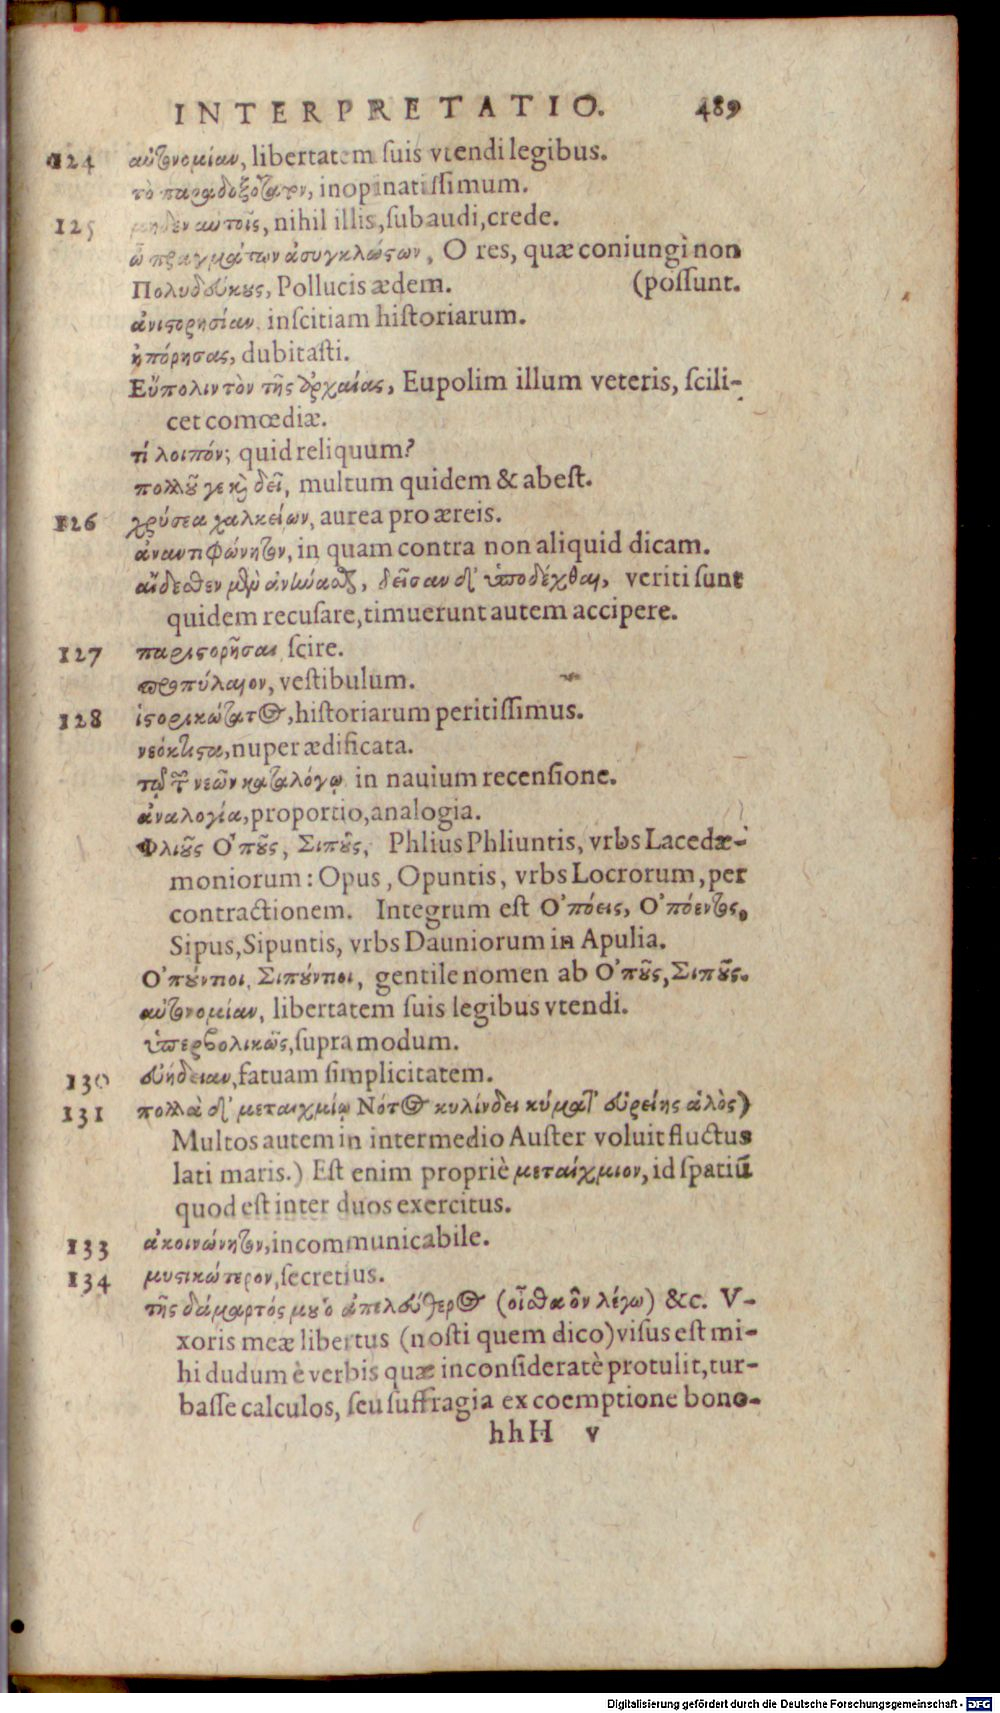 INTERPRETATIO. 489
124 αὐτονομίαν, libertatem ſuis vtendi legibus.
τὸ παραδοξότατον, inopinatiſſimum.
125 μηδὲν αὐτοῖς, nihil illis, ſubaudi, crede.
ὦ πραγμάτων ἀσυγκλώςων, O res, quæ coniungi non
Πολυδεύκους, Pollucis ædem. (poſſunt.
ἀνιςορησίαν, inſcitiam hiſtoriarum.
ἠπόρησας, dubitaſti.
Εὔπολιν τὸν τῆς ἀρχαίας, Eupolim illum veteris, ſcili-
cet comœdiæ.
τί λοιπόν; quid reliquum?
πολλοῦ γε καὶ δεῖ, multum quidem & abeſt.
126 χρύσεα χαλκείων, aurea pro æreis.
ἀναντιφώνητον, in quam contra non aliquid dicam.
αἴδεσθεν μὲν ἀνήνασθαι, δεῖσαν δ' ὑποδέχθαι, veriti sunt
quidem recuſare, timuerunt autem accipere.
127 παριςορῆσαι ſcire.
προπύλαιον, veſtibulum.
128 ἱςορικώτατος, hiſtoriarum peritiſſimus.
νεόκτιςα, nuper ædificata.
τῷ τῶν νεῶν καταλόγῳ in nauium recenſione.
ἀναλογία, proportio, analogia.
Φλιοῦς Ὀποῦς, Σιποῦς, Phlius Phliuntis, vrbs Lacedæ-
moniorum: Opus, Opuntis, vrbs Locrorum, per
contractionem. Integrum eſt Ὀπόεις, Ὀπόεντος,
Sipus, Sipuntis, vrbs Dauniorum in Apulia.
Ὀπούντιοι, Σιπούντιοι, gentile nomen ab Ὀποῦς, Σιποῦς.
αὐτονομίαν, libertatem ſuis legibus vtendi.
ὑπερβολικῶς, ſupra modum.
130 εὐήθειαν, fatuam ſimplicitatem.
131 πολλὰ δ' μεταιχμίῳ Νότος κυλίνδει κύματ' εὐρείης ἁλὸς)
Multos autem in intermedio Auſter voluit fluctus
lati maris.) Eſt enim propriè μεταίχμιον, id ſpatiū
quod eſt inter duos exercitus.
133 ἀκοινώνητον, incommunicabile.
134 μυςικώτερον, ſecretius.
τῆς δάμαρτός μου ὁ ἀπελεύθερος (οἶσθα ὃν λέγω) &c. V-
xoris meæ libertus (noſti quem dico) viſus eſt mi-
hi dudum è verbis quæ inconſideratè protulit, tur-
baſſe calculos, ſeu ſuffragia ex coemptione bono-
hhH v
Digitalisierung gefördert durch die Deutsche Forschungsgemeinschaft - DFG